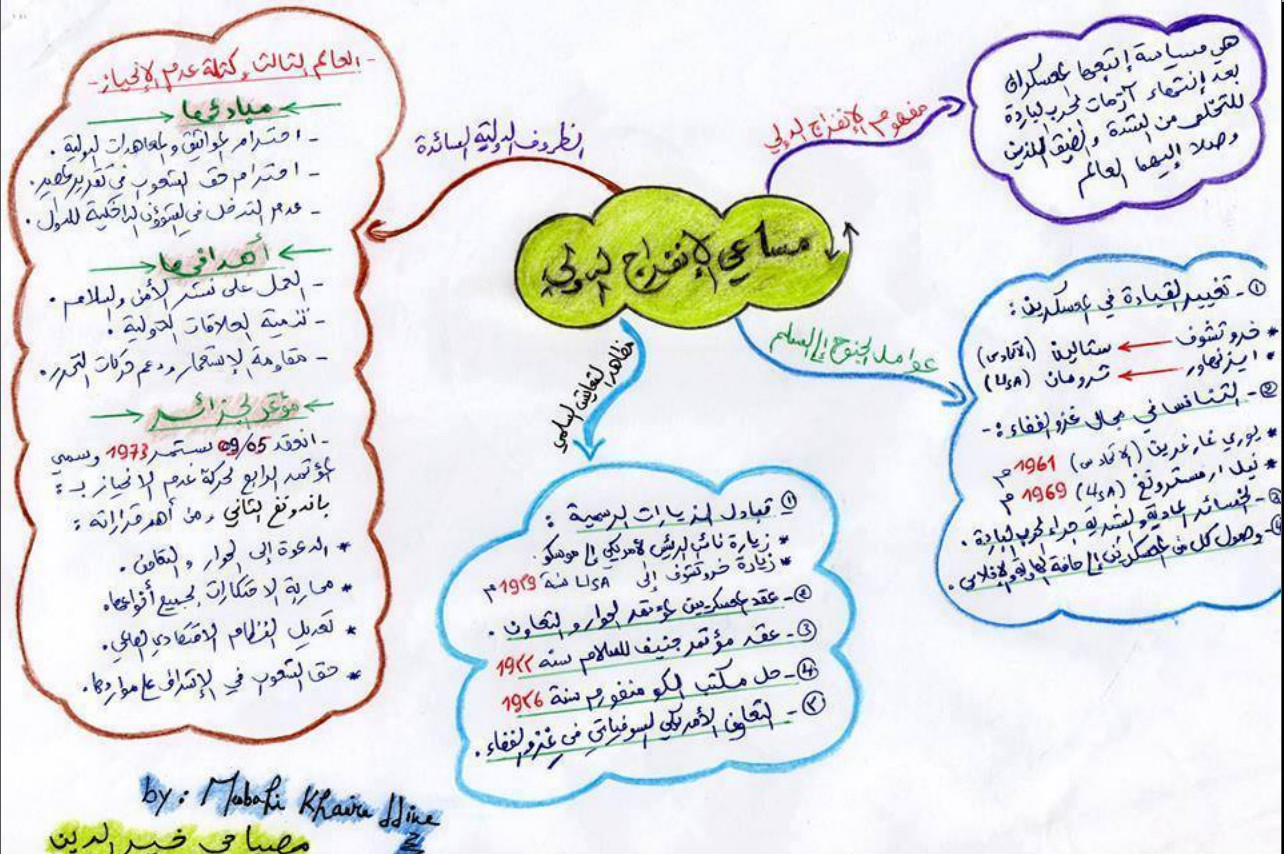 مساعي الإنفراج الدولي
مفهوم الإنفراج الدولي
هي سياسة إتبعها المعسكران
بعد إنتهاء أزمات الحرب الباردة
للتخلص من الشدة و الضيق اللذين
وصلا إليهما العالم
عوامل الجنوح إلى السلم
① - تغيير القيادة في المعسكرين :
* خروتشوف ← ستالين (الاتحاد س)
* ايزنهاور ← ترومان (USA)
② - التنافس في مجال غزو الفضاء : -
* يوري غاغرين (الاتحاد س) 1961 م
* نيل ارمسترونغ (USA) 1969 م
- الخسائر المادية والبشرية جراء الحرب الباردة .
- وصول كل من المعسكرين إلى حافة الهاوية والإفلاس .
مظاهر التعايش السلمي
① تبادل الزيارات الرسمية :
* زيارة نائب الرئيس الأمريكي إلى موسكو
* زيارة خروتشوف إلى USA سنة 1959 م
② - عقد المعسكرين لمؤتمر الحوار و التعاون .
③ - عقد مؤتمر جنيف للسلام سنة 1955
④ - حل مكتب الكومنفورم سنة 1956
⑤ - التعاون الأمريكي السوفياتي في غزو الفضاء .
الظروف الدولية السائدة
- العالم الثالث وكتلة عدم الإنحياز -
مبادئها
- احترام المواثيق والمعاهدات الدولية .
- احترام حق الشعوب في تقرير المصير .
- عدم التدخل في الشؤون الداخلية للدول .
أهدافها
- العمل على نشر الأمن والسلام .
- تنمية العلاقات الدولية .
- مقاومة الإستعمار ودعم حركات التحرر .
مؤتمر الجزائر
- انعقد 09/05 سبتمبر 1973 وسمي
المؤتمر الرابع لحركة عدم الانحياز بـ :
باندونغ الثاني ومن أهم قراراته :
* الدعوة إلى الحوار و التعاون .
* محاربة الاحتكارات بجميع أنواعها .
* تعديل النظام الاقتصادي العالمي .
* حق الشعوب في الإشراف على مواردها .
by : Mabahi Khaireddine
مصباحي خير الدين